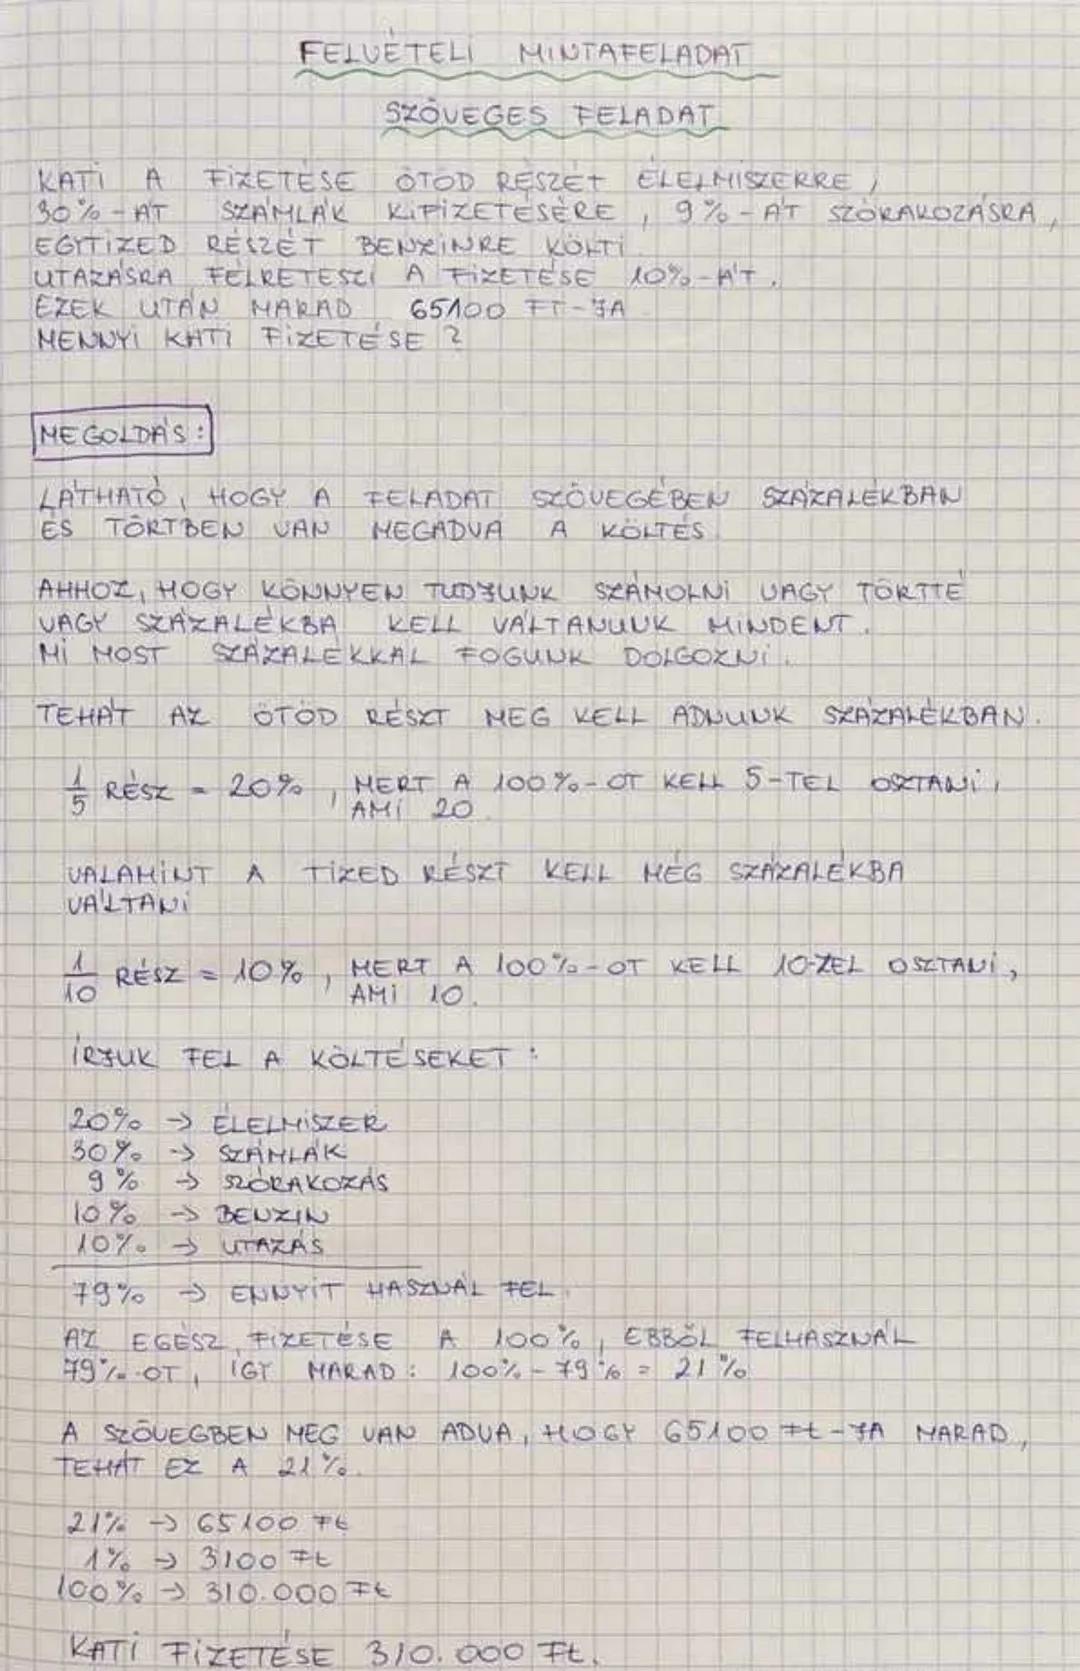 FELVÉTELI MINTAFELADAT
SZÖVEGES FELADAT
KATI A FIZETÉSE ÖTÖD RÉSZÉT ÉLELMISZERRE,
30%-ÁT SZÁMLÁK KIFIZETÉSÉRE, 9%-ÁT SZÓRAKOZÁSRA,
EGYTIZED RÉSZÉT BENZINRE KÖLTI.
UTAZÁSRA FÉLRETESZI A FIZETÉSE 10%-ÁT.
EZEK UTÁN MARAD 65100 FT-JA.
MENNYI KATI FIZETÉSE?
MEGOLDÁS:
LÁTHATÓ, HOGY A FELADAT SZÖVEGÉBEN SZÁZALÉKBAN
ÉS TÖRTBEN VAN MEGADVA A KÖLTÉS.
AHHOZ, HOGY KÖNNYEN TUDJUNK SZÁMOLNI VAGY TÖRTTÉ
VAGY SZÁZALÉKBA KELL VÁLTANUNK MINDENT.
MI MOST SZÁZALÉKKAL FOGUNK DOLGOZNI.
TEHÁT AZ ÖTÖD RÉSZT MEG KELL ADNUNK SZÁZALÉKBAN.
1/5 RÉSZ = 20%, MERT A 100%-OT KELL 5-TEL OSZTANI,
AMI 20.
VALAMINT A TIZED RÉSZT KELL MÉG SZÁZALÉKBA
VÁLTANI
1/10 RÉSZ = 10%, MERT A 100%-OT KELL 10-ZEL OSZTANI,
AMI 10.
ÍRJUK FEL A KÖLTÉSEKET:
20% → ÉLELMISZER
30% → SZÁMLÁK
9% → SZÓRAKOZÁS
10% → BENZIN
10% → UTAZÁS
79% → ENNYIT HASZNÁL FEL.
AZ EGÉSZ FIZETÉSE A 100%, EBBŐL FELHASZNÁL
79%-OT, ÍGY MARAD: 100% - 79% = 21%
A SZÖVEGBEN MEG VAN ADVA, HOGY 65100 Ft-JA MARAD,
TEHÁT EZ A 21%.
21% → 65100 Ft
1% → 3100 Ft
100% → 310.000 Ft
KATI FIZETÉSE 310.000 Ft.